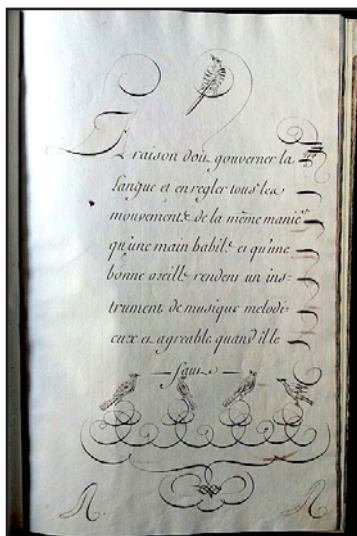 La raison doit gouverner la
langue et en regler tous les
mouvements de la même maniere
qu'une main habile et qu'une
bonne oreille rendent un ins-
trument de musique melodi-
eux et agreable quand il le
faut